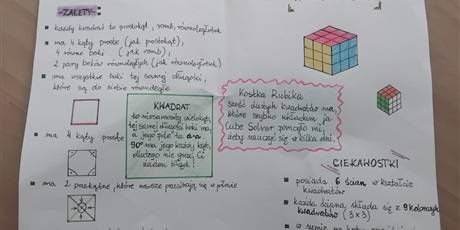 -ZALETY-
każdy kwadrat to prostokąt, romb, równoległobok
ma 4 kąty proste (jak prostokąt),
4 równe boki (jak romb),
2 pary boków równoległych (jak równoległobok)
ma wszystkie boki tej samej długości,
które są do siebie równoległe
ma 4 kąty proste
ma 2 przekątne, które zawsze przecinają się w połowie
KWADRAT
to niesamowity wielokąt,
tej samej długości boki ma,
a jego pole to a·a.
90° ma jego każdy kąt,
dlatego nie grozi Ci
żaden błąd!
Kostka Rubika
sześć dużych kwadratów ma,
które szybko układam ja
Cube Solver pomogło mi,
żeby nauczyć się w kilka dni.
CIEKAWOSTKI
posiada 6 ścian w kształcie
kwadratów
każda ściana składa się z 9 kolorowych
kwadratów (3x3)
w sumie